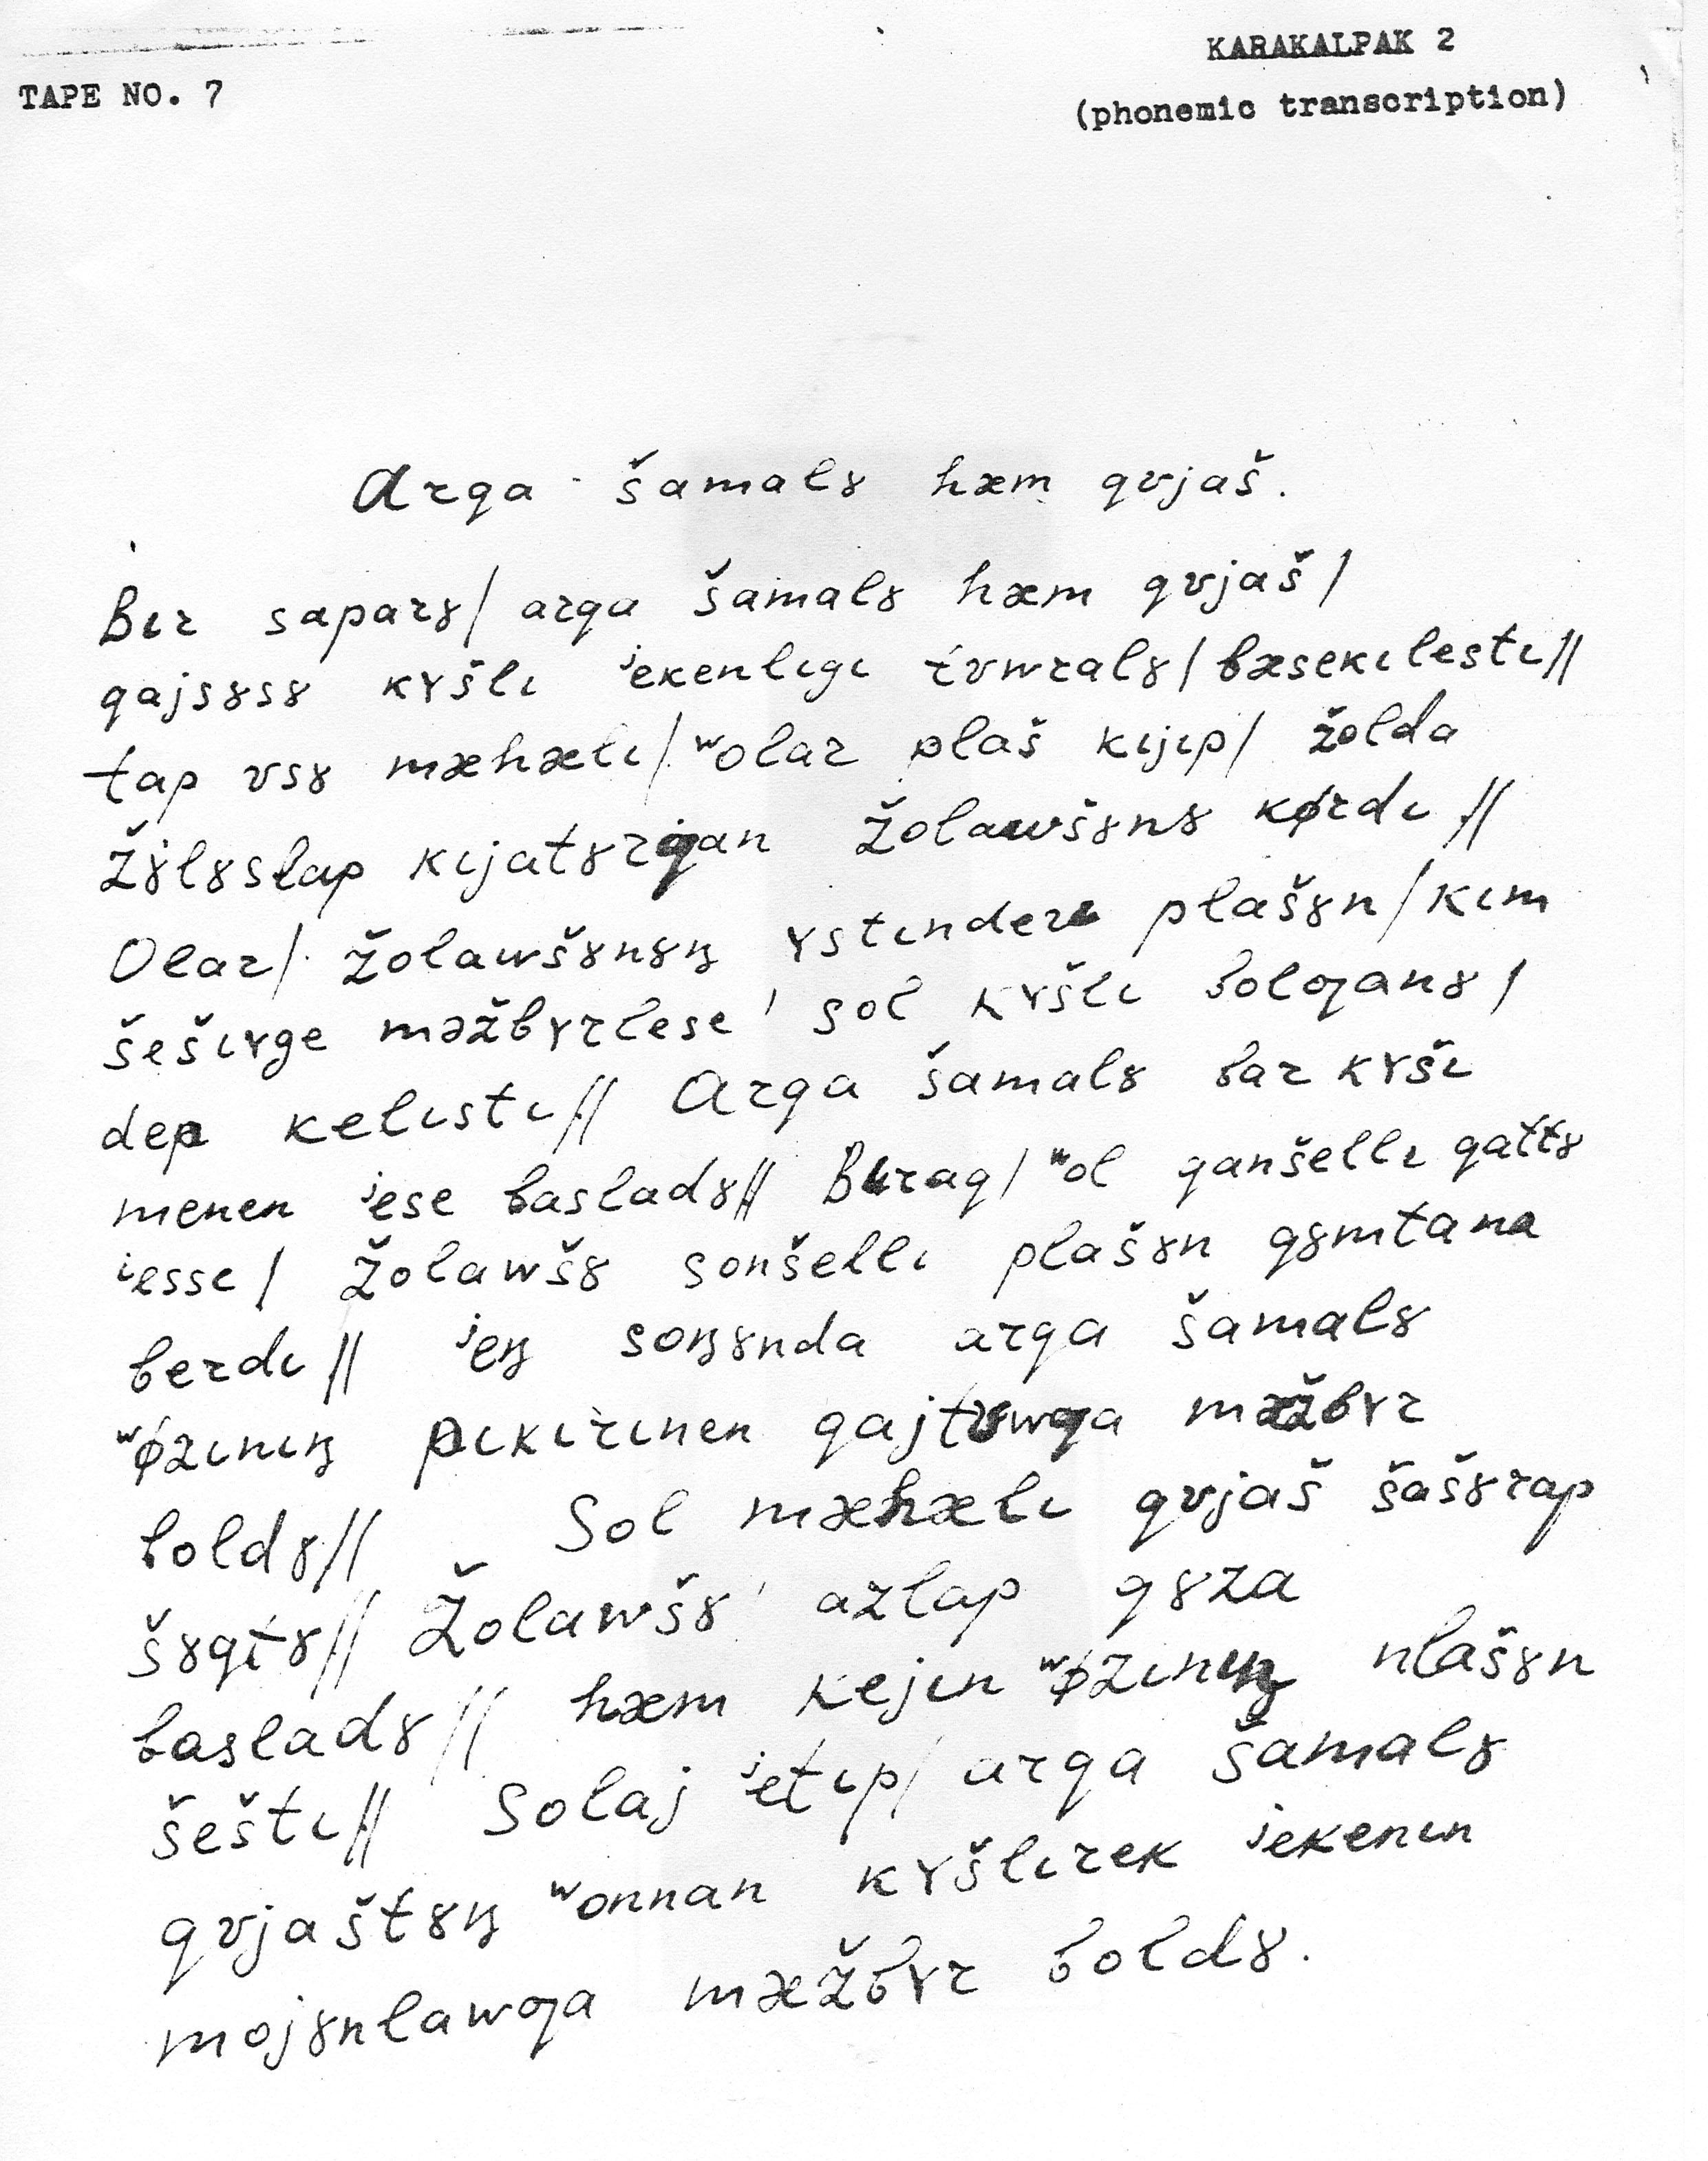 KARAKALPAK 2
TAPE NO. 7
(phonemic transcription)
Arqa šamalɤ hæm qʋjaš.
Bιr saparɤ/ arqa šamalɤ hæm qʋjaš/
qajsɤsɤ kʏšlι ʲekenlιgι tʋwralɤ/ bæsekιlestι//
tap ʋsɤ mæhæli/ ʷolar plaš kιjιp/ žolda
žɤlɤslap kιjatɤrƣan žolawšɤnɤ kørdι//
Olar/ žolawšɤnɤŋ ʏstιnderι plašɤn/ kιm
šešιʏge mæžbʏrlese/ sol kʏšlι bolƣanɤ/
dep kelιstι// Arqa šamalɤ bar kʏšι
menen ʲese basladɤ// Bιraq/ ʷol qanšellι qattɤ
ʲessι/ žolawšɤ sonšellι plašɤn qɤmtana
berdι// ʲeŋ soŋɤnda arqa šamalɤ
ʷøzιnιŋ pιkιrιnen qajtʋwƣa mæžbʏr
boldɤ// Sol mæhælι qʋjaš šašɤrap
šɤqtɤ// Žolawšɤ/ azlap qɤza
basladɤ// hæm kejιn ʷøzιnιŋ plašɤn
šeštι// Solaj ʲetιp/ arqa šamalɤ
qʋjaštɤŋ ʷonnan kʏšlιrek ʲekenιn
mojɤnlawƣa mæžbʏr boldɤ.